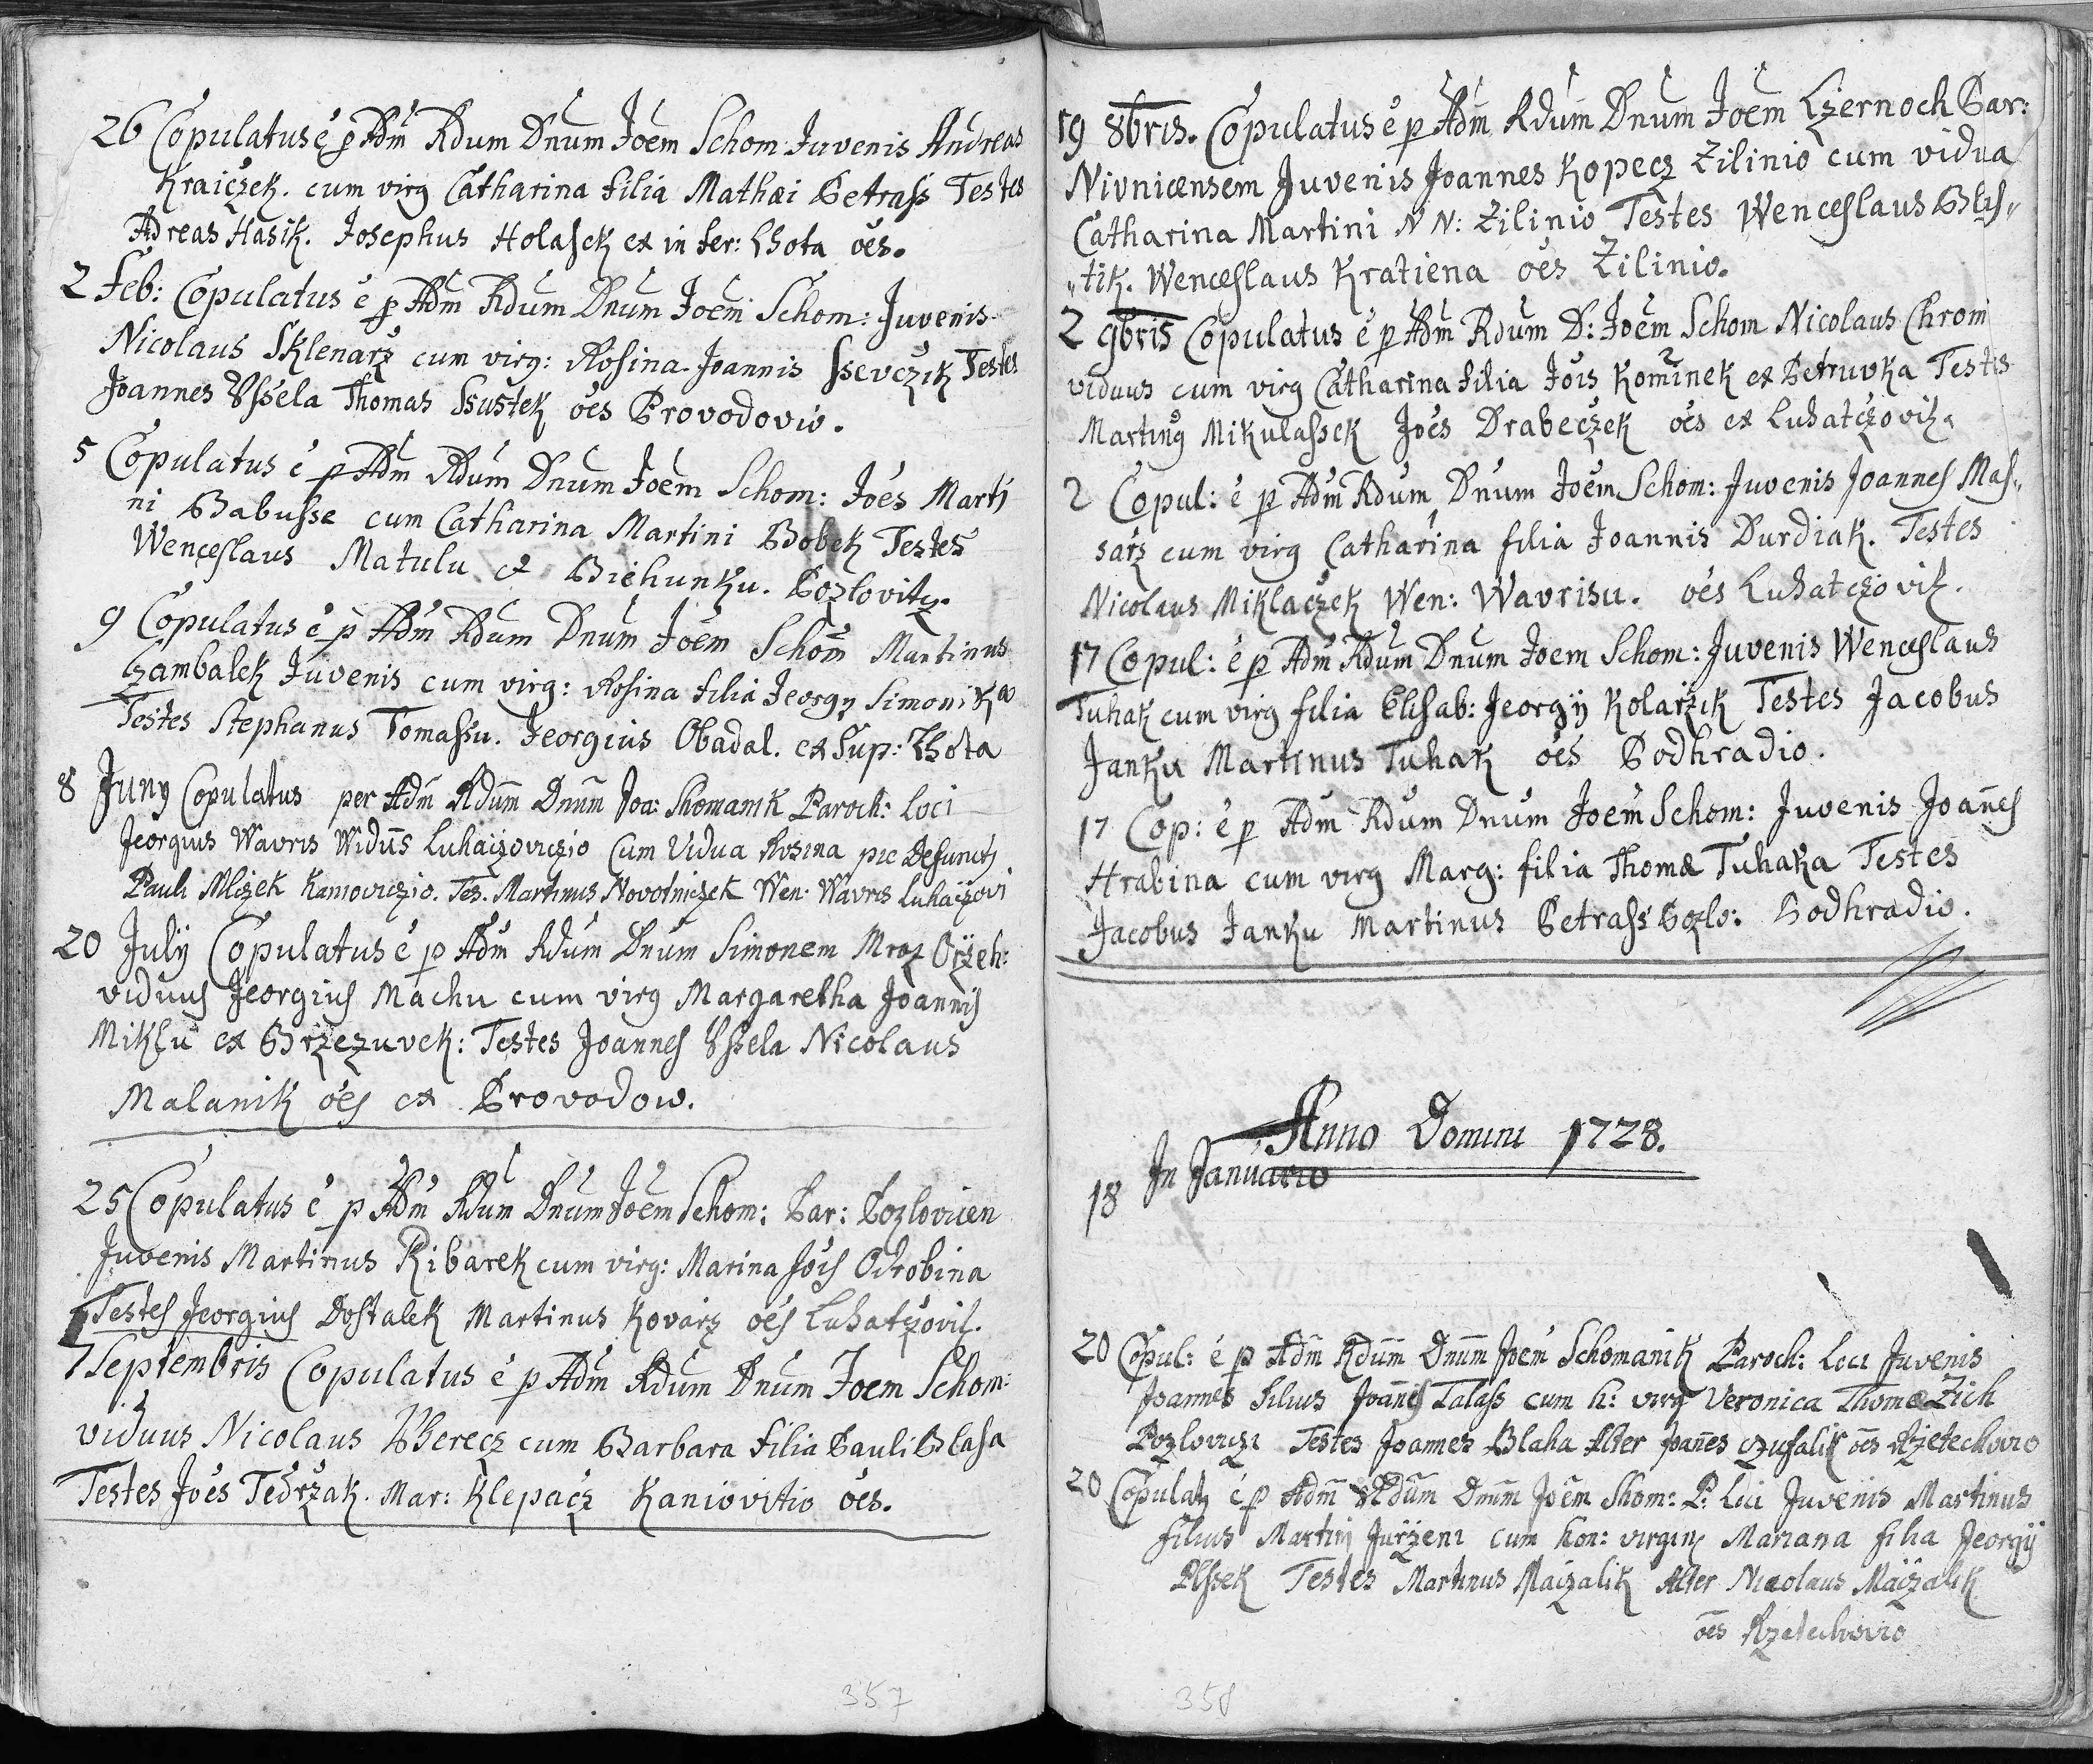 26 Copulatus ė p Adm̃ Rdum Dnum Joem Schom Juvenis Andreas
Kraiczek. cum virg Catharina filia Mathæi Petrass Testes
Adreas Hasik. Josephus Holasek ex infer: Lhota oẽs.
2 Feb: Copulatus ė p Adm̃ Rdum Dnum Joem Schom: Juvenis
Nicolaus Sklenarz cum virg: Rosina Joannis Ssevczik Testes
Joannes Ussela Thomas Ssustek oẽs Provodovio.
5 Copulatus ė p Adm̃ Rdum Dnum Joem Schom: Joẽs Marti
ni Babusse cum Catharina Martini Bobek Testes
Wenceslaus Matulu et Biehunku. Pozlovitz.
9 Copulatus ė p Adm̃ Rdum Dnum Joem Schom̃ Martinus
Czambalek Juvenis cum virg: Rosina filia Jeorgy Simonika
Testes Stephanus Tomassu. Jeorgius Obadal. ex Sup: Lhota
8 Juny Copulatus per Adm̃ Rdum̃ Dnum̃ Joa: Shomanik Paroch: Loci
Jeorgius Wavris Widũs Luhaczoviczio Cum Vidua Rosina pie Defuncti
Pauli Mliczek Kanioviczio. Tes. Martinus Novotniczek Wen: Wavris Luhaczovi
20 July Copulatus ė p Adm̃ Rdum Dnum Simonem Mraz Orzeh:
viduus Jeorgius Machu cum virg Margaretha Joannis
Miklu ex Brzezuvek: Testes Joannes Ussela Nicolaus
Malanik oẽs ex Provodow.
25 Copulatus ė p Adm̃ Rdum Dnum Joem Schom: Par: Pozlovicen
Juvenis Martinus Ribarek cum virg: Marina Jois Odrobina
Testes Jeorgius Dostalek Martinus Kovarz oẽs Luhatczovic.
7 Septembris Copulatus ė p Adm̃ Rdum Dnum Joem Schom:
viduus Nicolaus Uherecz cum Barbara filia Pauli Blasa
Testes Joẽs Tedrzak. Mar: Klepacz Kaniovitio oẽs.
357
19 8bris. Copulatus ė p Adm̃ Rdum Dnum Joem Czernoch Par:
Nivnicensem Juvenis Joannes Kopecz Zilinio cum vidua
Catharina Martini NN: Zilinio Testes Wenceslaus Blis„
„tik. Wenceslaus Kratiena oẽs Zilinio.
2 9bris Copulatus ė p Adm̃ Rdum D: Joem Schom Nicolaus Chrom
viduus cum virg Catharina filia Jois Kominek ex Petruvka Testis
Martinq Mikulassek Joẽs Drabeczek oẽs ex Luhatczovitz.
2 Copul: ė p Adm̃ Rdum Dnum Joem Schom: Juvenis Joannes Mas„
sarz cum virg Catharina filia Joannis Durdiak. Testes
Nicolaus Miklaczek Wen: Wavrisu. oẽs Luhatczovitz.
17 Copul: ė p Adm̃ Rdum Dnum Joem Schom: Juvenis Wenceslaus
Tuhak cum virg filia Elisab: Jeorgij Kolarzik Testes Jacobus
Janku Martinus Tuhak oẽs Podhradio.
17 Cop: ė p Adm̃ Rdum Dnum Joem Schom: Juvenis Joañes
Hrabina cum virg Marg: filia Thomæ Tuhaka Testes
Jacobus Janku Martinus Petrass Pozlo: Podhradio.
Anno Domini 1728.
In Januario
18
20 Copul: ė p Adm̃ Rdum̃ Dnum̃ Joem Schomanik Paroch: Loci Juvenis
Joannes filius Joañes Talass cum h: virg Veronica Thomæ Zich
Pozloviczi Testes Joannes Blaha Alter Joañes Czusalik oẽs Rzetechovio
20 Copulatq ė p Adm̃ Rdum̃ Dnum̃ Joem Shom: P: Loci Juvenis Martinus
filius Martini Jurzeni cum hon: virgine Mariana filia Jeorgij
Plssek Testes Martinus Maczalik Alter Nicolaus Maczalik
oẽs Rzetechovio
358